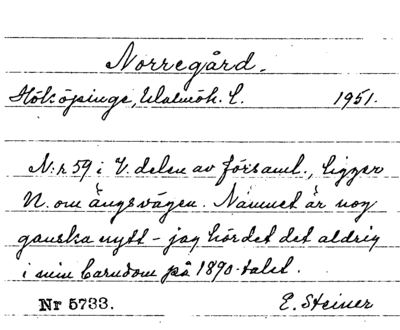 Norregård.
Hököpinge, Malmöh. L. 1951.
N:r 59 i V. delen av församl., ligger
N. om ängsvägen. Namnet är nog
ganska nytt - jag hördet det aldrig
i min barndom på 1890-talet.
Nr 5733. E. Steiner